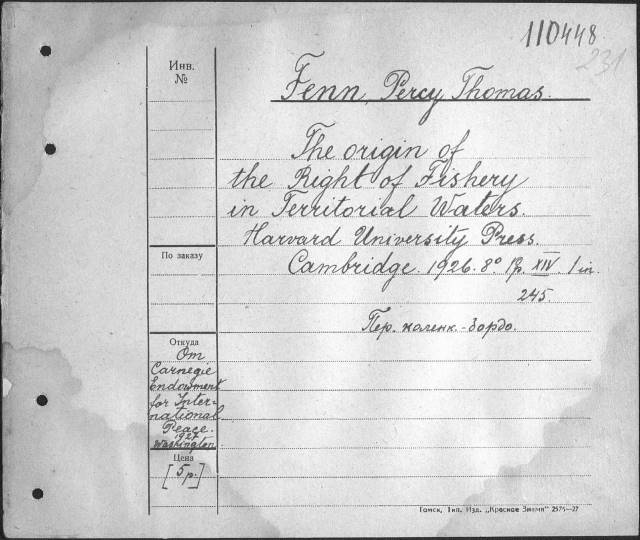 110448
231
Инв.
№
Fenn, Percy Thomas.
The origin of
the Right of Fishery
in Territorial Waters.
Harvard University Press.
Cambridge. 1926. 8° p. XIV. 1 in.
245.
Пер. коленк.-бордо.
По заказу
Откуда
От
Carnegie
Endowment
for Inter-
national
Peace.
1927
Washington.
Цена
[5 р.]
Томск, Тип. Изд. „Красное Знамя" 2575—27